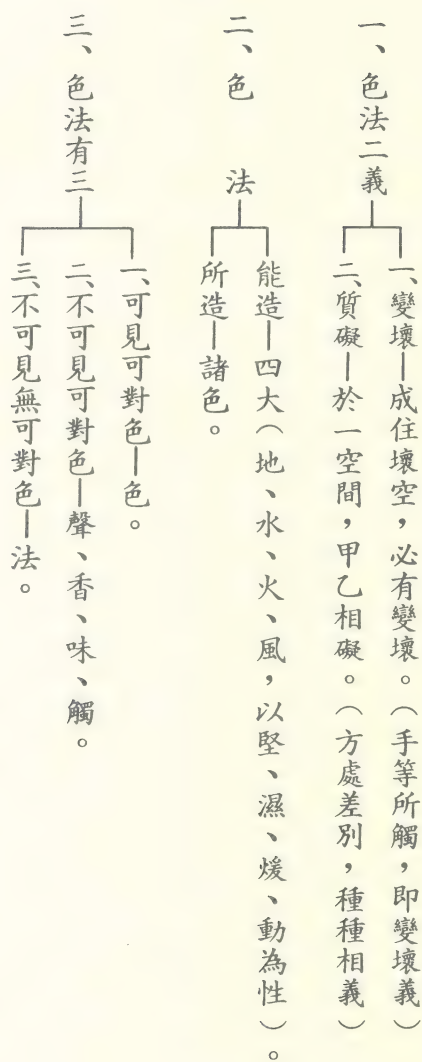 一、色法二義
一、變壞—成住壞空，必有變壞。（手等所觸，即變壞義）
二、質礙—於一空間，甲乙相礙。（方處差別，種種相義）
二、色　法
能造—四大（地、水、火、風，以堅、濕、煖、動為性）。
所造—諸色。
三、色法有三
一、可見可對色—色。
二、不可見可對色—聲、香、味、觸。
三、不可見無可對色—法。